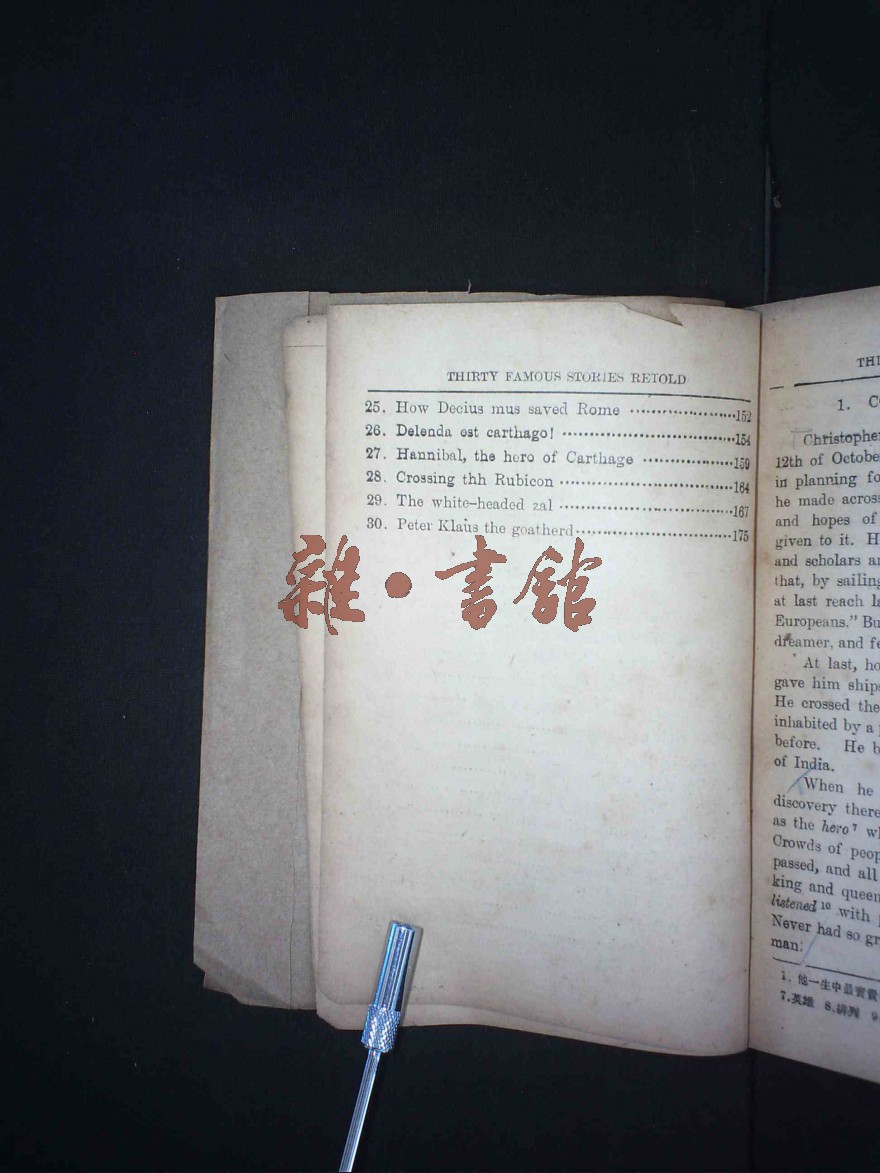 THIRTY FAMOUS STORIES RETOLD
25. How Decius mus saved Rome ····················152
26. Delenda est carthago! ································154
27. Hannibal, the hero of Carthage ·················159
28. Crossing thh Rubicon ································164
29. The white-headed zal ································167
30. Peter Klaus the goatherd·····························175
雜·書館
THI
1. C
Christopher
12th of Octobe
in planning fo
he made across
and hopes of
given to it. H
and scholars a
that, by sailing
at last reach la
Europeans." Bu
dreamer, and fe
At last, ho
gave him ships
He crossed the
inhabited by a
before. He b
of India.
When he
discovery there
as the hero⁷ wh
Crowds of peop
passed, and all
king and queen
listened¹⁰ with
Never had so gr
man.
1. 他一生中最寶貴
7.英雄 8.排列 9